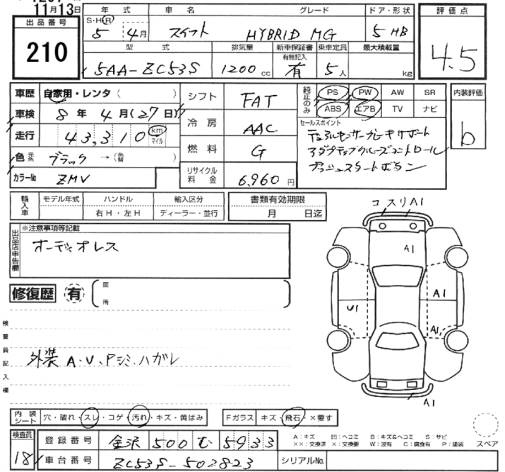 11月13日
出品番号 210
年式 S・H・R 5年 4月
車名 スイフト
グレード HYBRID MG
ドア・形状 5 HB
評価点 4.5
型式 5AA-ZC53S
排気量 1200cc
新車保証書 有記入 有
乗車定員 5人
最大積載量 kg
車歴 自家用・レンタ ( )
車検 8年 4月(27日)
走行 43,310 km マイル
色 ブラック → (色替 )
カラーNo ZMV
シフト FAT
冷房 AAC
燃料 G
リサイクル料金 6,960円
純正のみ PS PW AW SR
ABS エアB TV ナビ
内装評価 b
セールスポイント
デュアルセンサーブレーキサポート
アダプティブクルーズコントロール
プッシュスタートボタン
輸入車 モデル年式 ハンドル 右H・左H 輸入区分 ディーラー・並行
書類有効期限 月 日迄
※注意事項等記載
出品店申告欄
オーディオレス
修復歴 有 箇所
検査員記入欄
外装 A・U、Pシミ、ハガレ
コスリA1
A1
A1
U1
A1
内装シート 穴・破れ・スレ・コゲ・汚れ・キズ・黄ばみ
Fガラス キズ・飛石・×要す
A:キズ B:キズ&ヘコミ S:サビ
××:交換済 W:波有 C:腐食有 P:塗装 ×:要交換
スペア
検査員 18
登録番号 金沢 500 む 5933
車台番号 ZC53S-502823
シリアルNo.